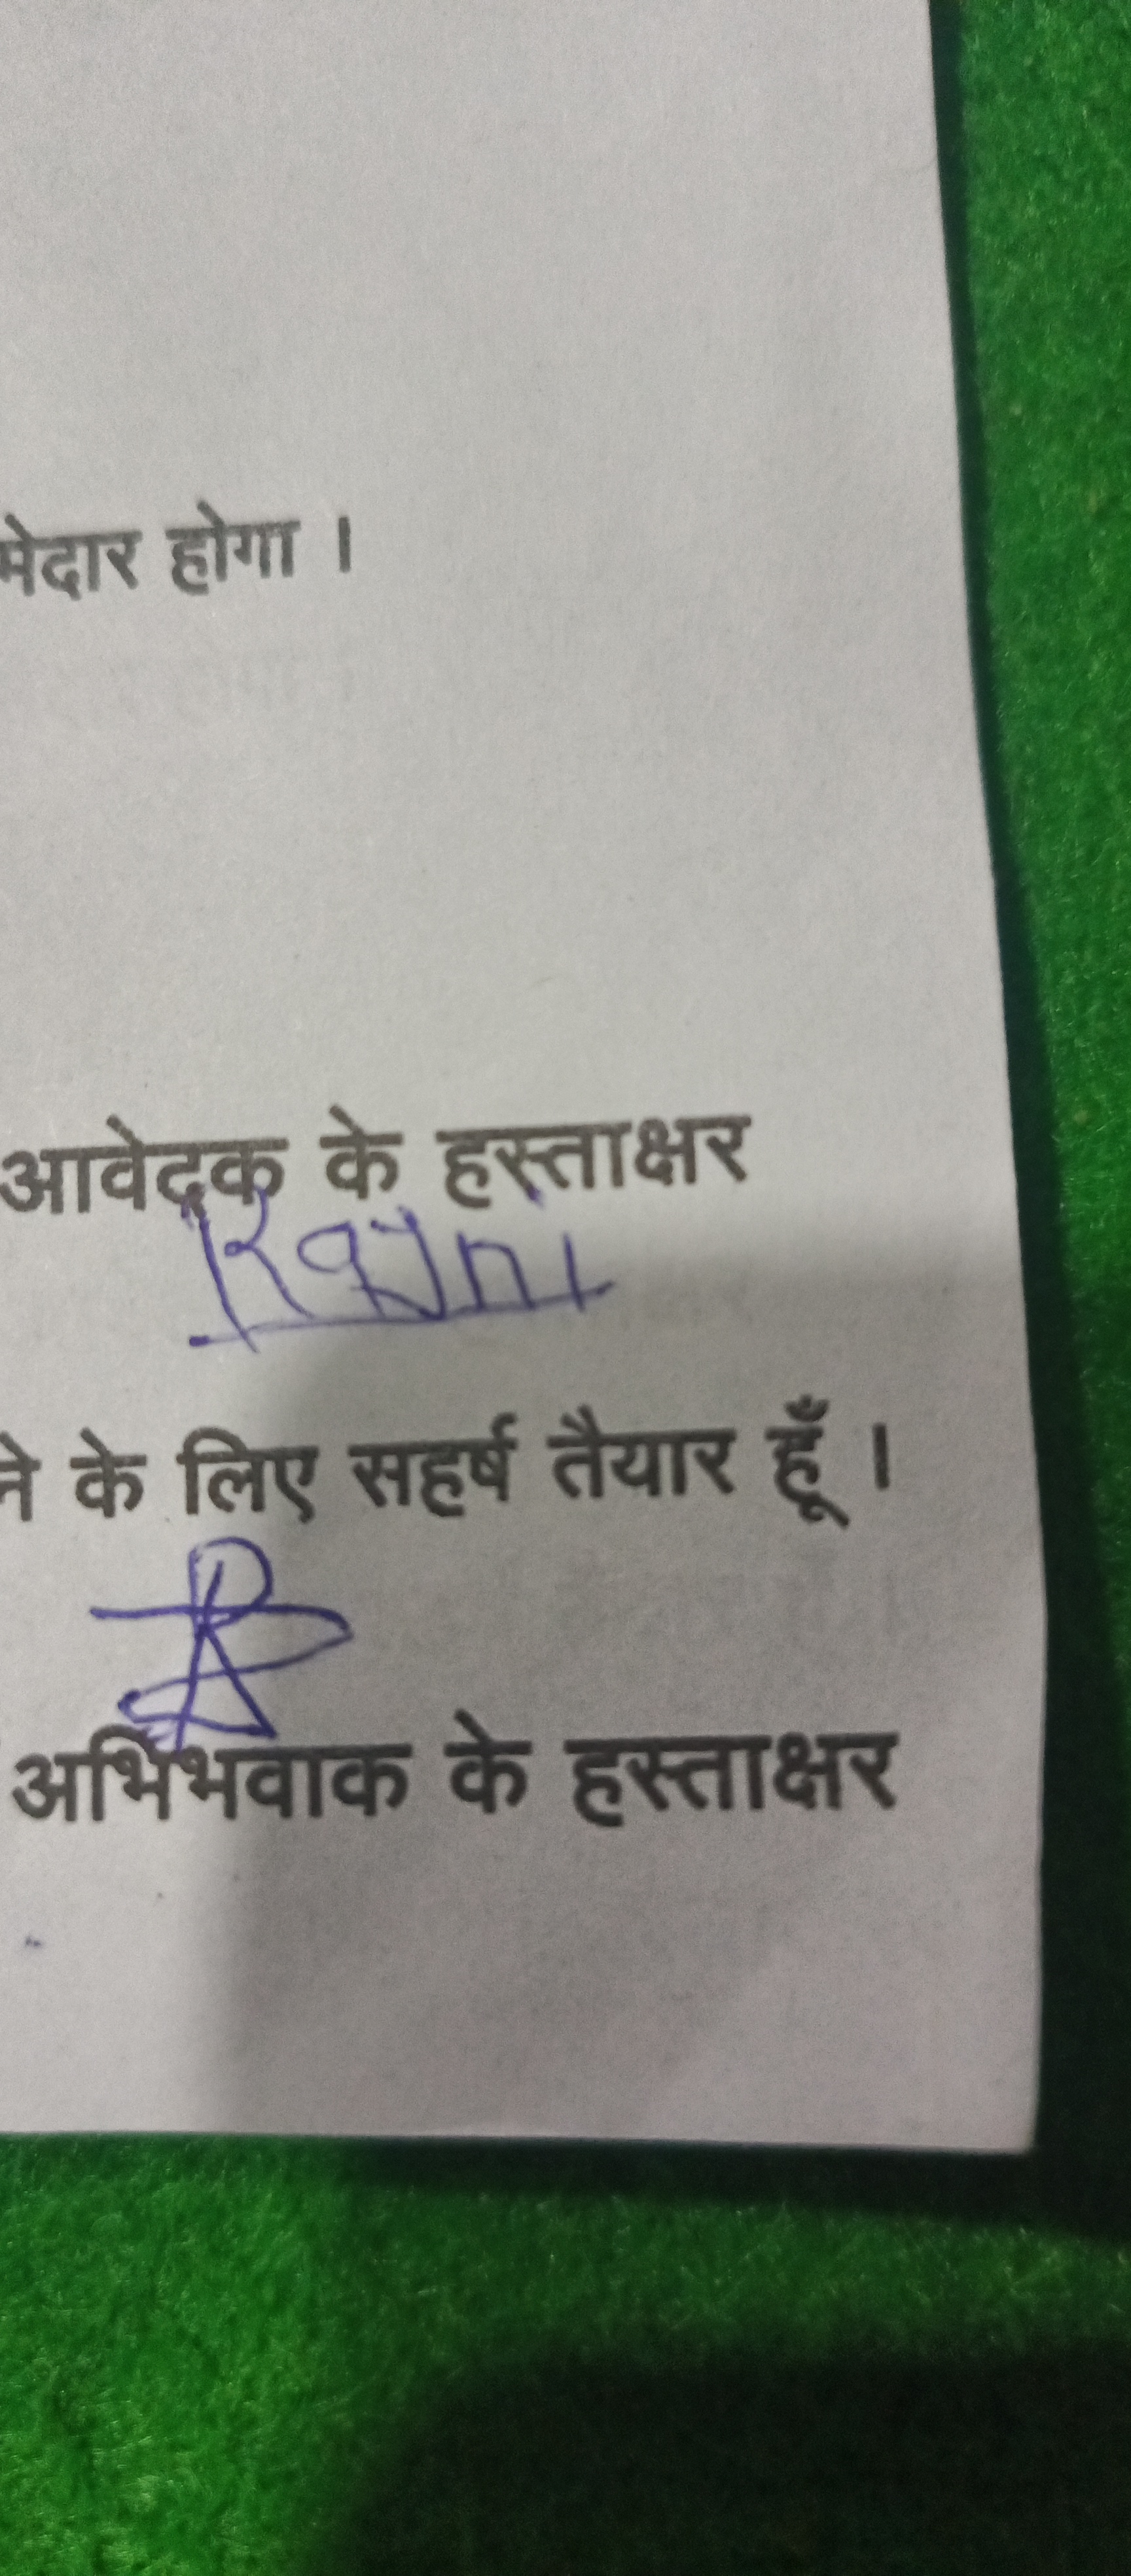 मेदार होगा ।
आवेदक के हस्ताक्षर
Rajni
ने के लिए सहर्ष तैयार हूँ ।
अभिभवाक के हस्ताक्षर